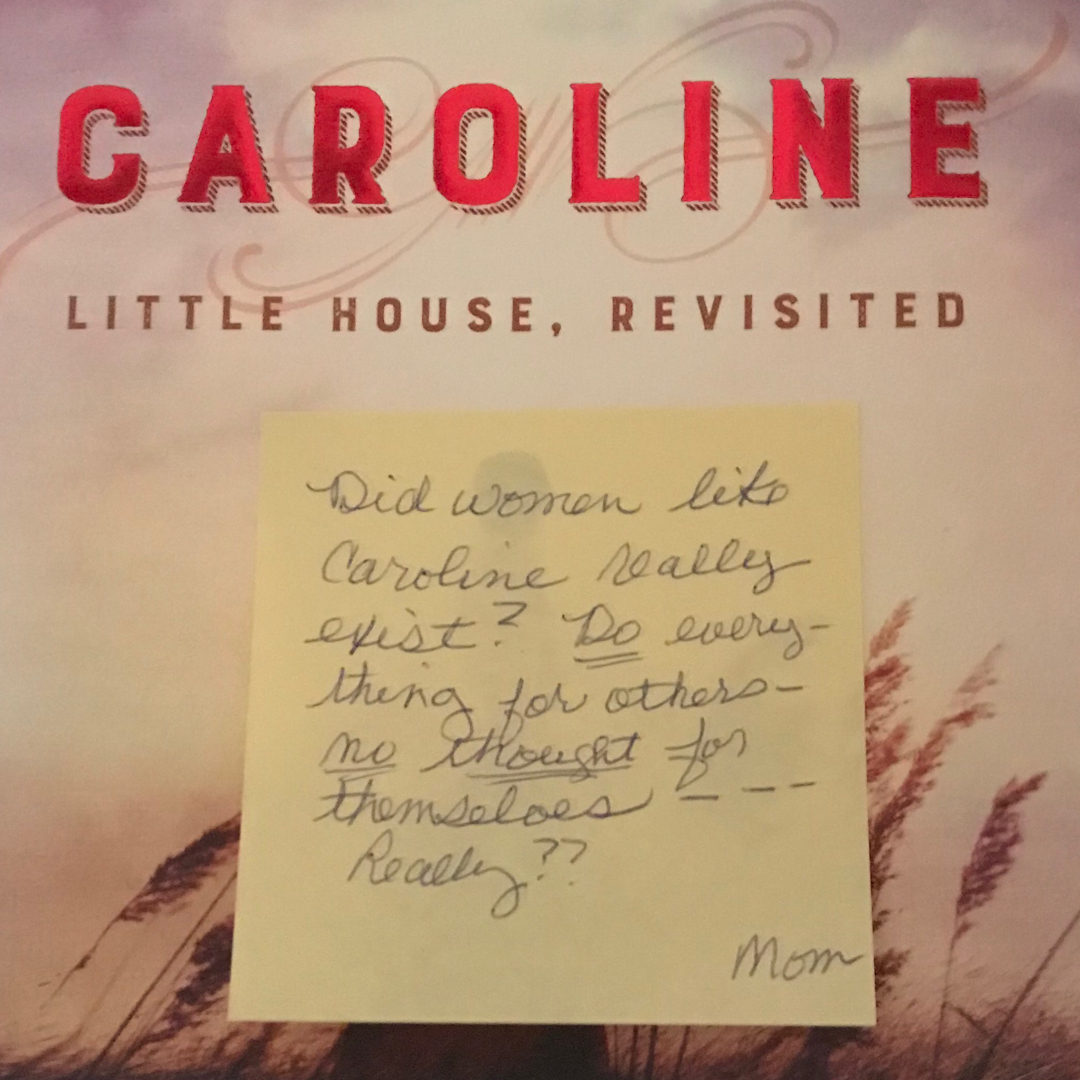 CAROLINE
LITTLE HOUSE, REVISITED
Did women like
Caroline really
exist? Do every-
thing for others-
no thought for
themselves - - -
Really??
Mom